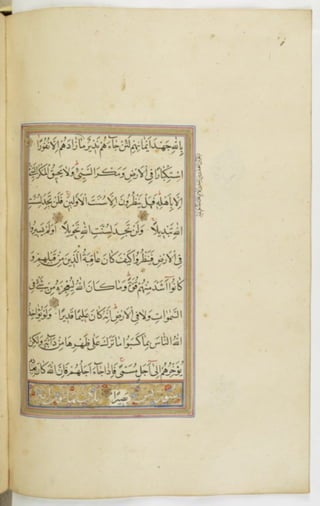 بِاللهِ جَهْدَ اَيْمَانِهِمْ لَئِنْ جَاءَهُمْ نَذِيرٌ مَا زَادَهُمْ اِلَّا نُفُورًا
اسْتِكْبَارًا فِى الْاَرْضِ وَمَكْرَ السَّيِّئِ وَلَا يَحِيقُ الْمَكْرُ السَّيِّئُ
اِلَّا بِاَهْلِهِ فَهَلْ يَنْظُرُونَ اِلَّا سُنَّتَ الْاَوَّلِينَ فَلَنْ تَجِدَ لِسُنَّتِ
اللهِ تَبْدِيلًا وَلَنْ تَجِدَ لِسُنَّتِ اللهِ تَحْوِيلًا اَوَلَمْ يَسِيرُوا
فِى الْاَرْضِ فَيَنْظُرُوا كَيْفَ كَانَ عَاقِبَةُ الَّذِينَ مِنْ قَبْلِهِمْ وَ
كَانُوا اَشَدَّ مِنْهُمْ قُوَّةً وَمَا كَانَ اللهُ لِيُعْجِزَهُ مِنْ شَيْءٍ فِى
السَّمٰوَاتِ وَلَا فِى الْاَرْضِ اِنَّهُ كَانَ عَلِيمًا قَدِيرًا وَلَوْ يُؤَاخِذُ
اللهُ النَّاسَ بِمَا كَسَبُوا مَا تَرَكَ عَلٰى ظَهْرِهَا مِنْ دَابَّةٍ وَلٰكِنْ
يُؤَخِّرُهُمْ اِلٰى اَجَلٍ مُسَمًّى فَاِذَا جَاءَ اَجَلُهُمْ فَاِنَّ اللهَ كَانَ بِعِبَادِهِ
بَصِيرًا